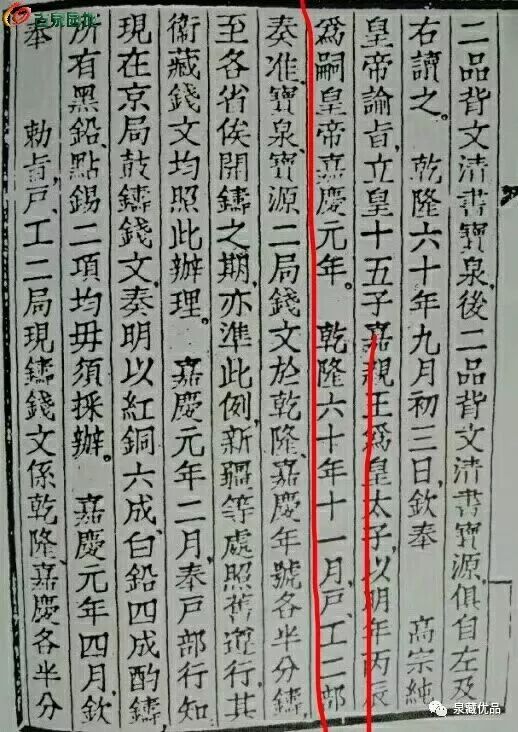 二品背文清書寶泉,後二品背文清書寶源,俱自左及
右讀之。 乾隆六十年九月初三日,欽奉 高宗純
皇帝諭旨,立皇十五子嘉親王爲皇太子,以明年丙辰
爲嗣皇帝嘉慶元年。 乾隆六十年十一月,戶、工二部
奏准,寶泉、寶源二局錢文於乾隆、嘉慶年號各半分鑄,
至各省俟開鑄之期,亦準此例,新疆等處照舊遵行,其
衞藏錢文均照此辦理。 嘉慶元年二月,奉戶部行知
現在京局鼓鑄錢文,奏明以紅銅六成、白鉛四成酌鑄,
所有黑鉛、點錫二項均毋須採辦。 嘉慶元年四月,欽
奉 勅旨,戶、工二局現鑄錢文係乾隆、嘉慶各半分
泉藏优品